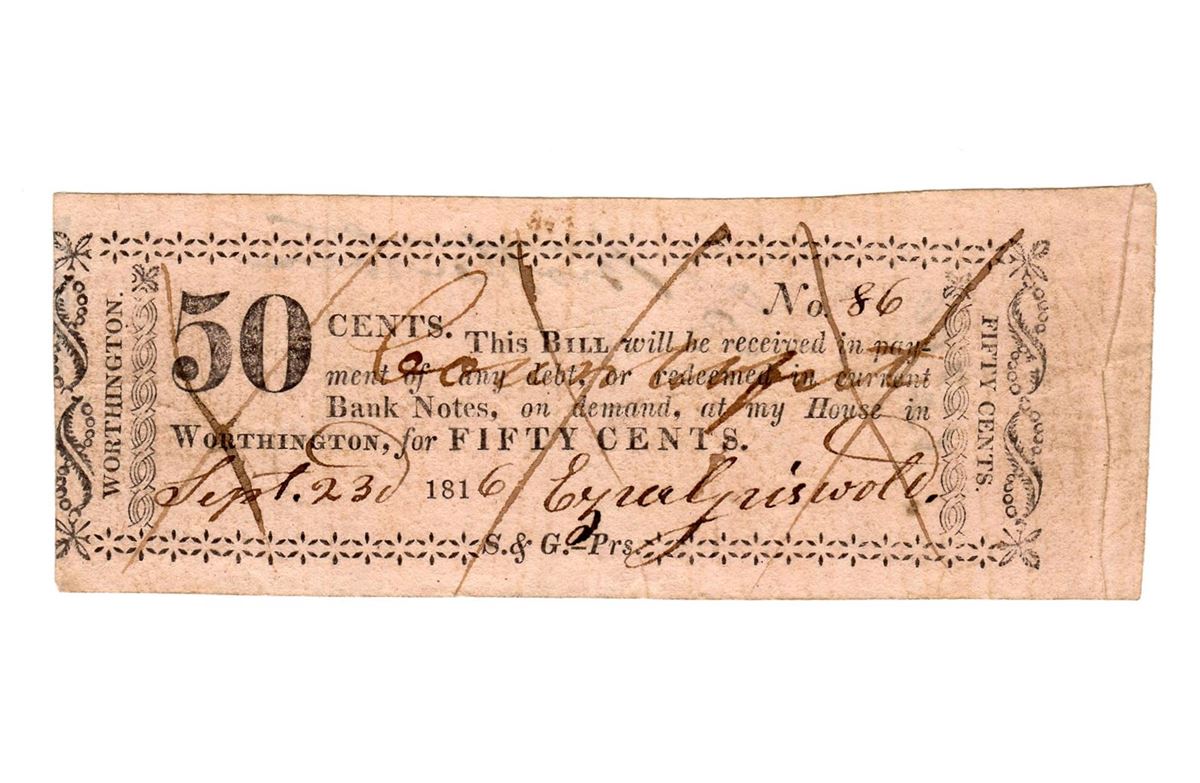 WORTHINGTON.
No. 86
50 CENTS. This BILL will be received in pay-
ment of any debt, or redeemed in current
Bank Notes, on demand, at my House in
WORTHINGTON, for FIFTY CENTS.
Sept. 23d 1816 Ezra Griswold.
S. & G.—Prs.
FIFTY CENTS.